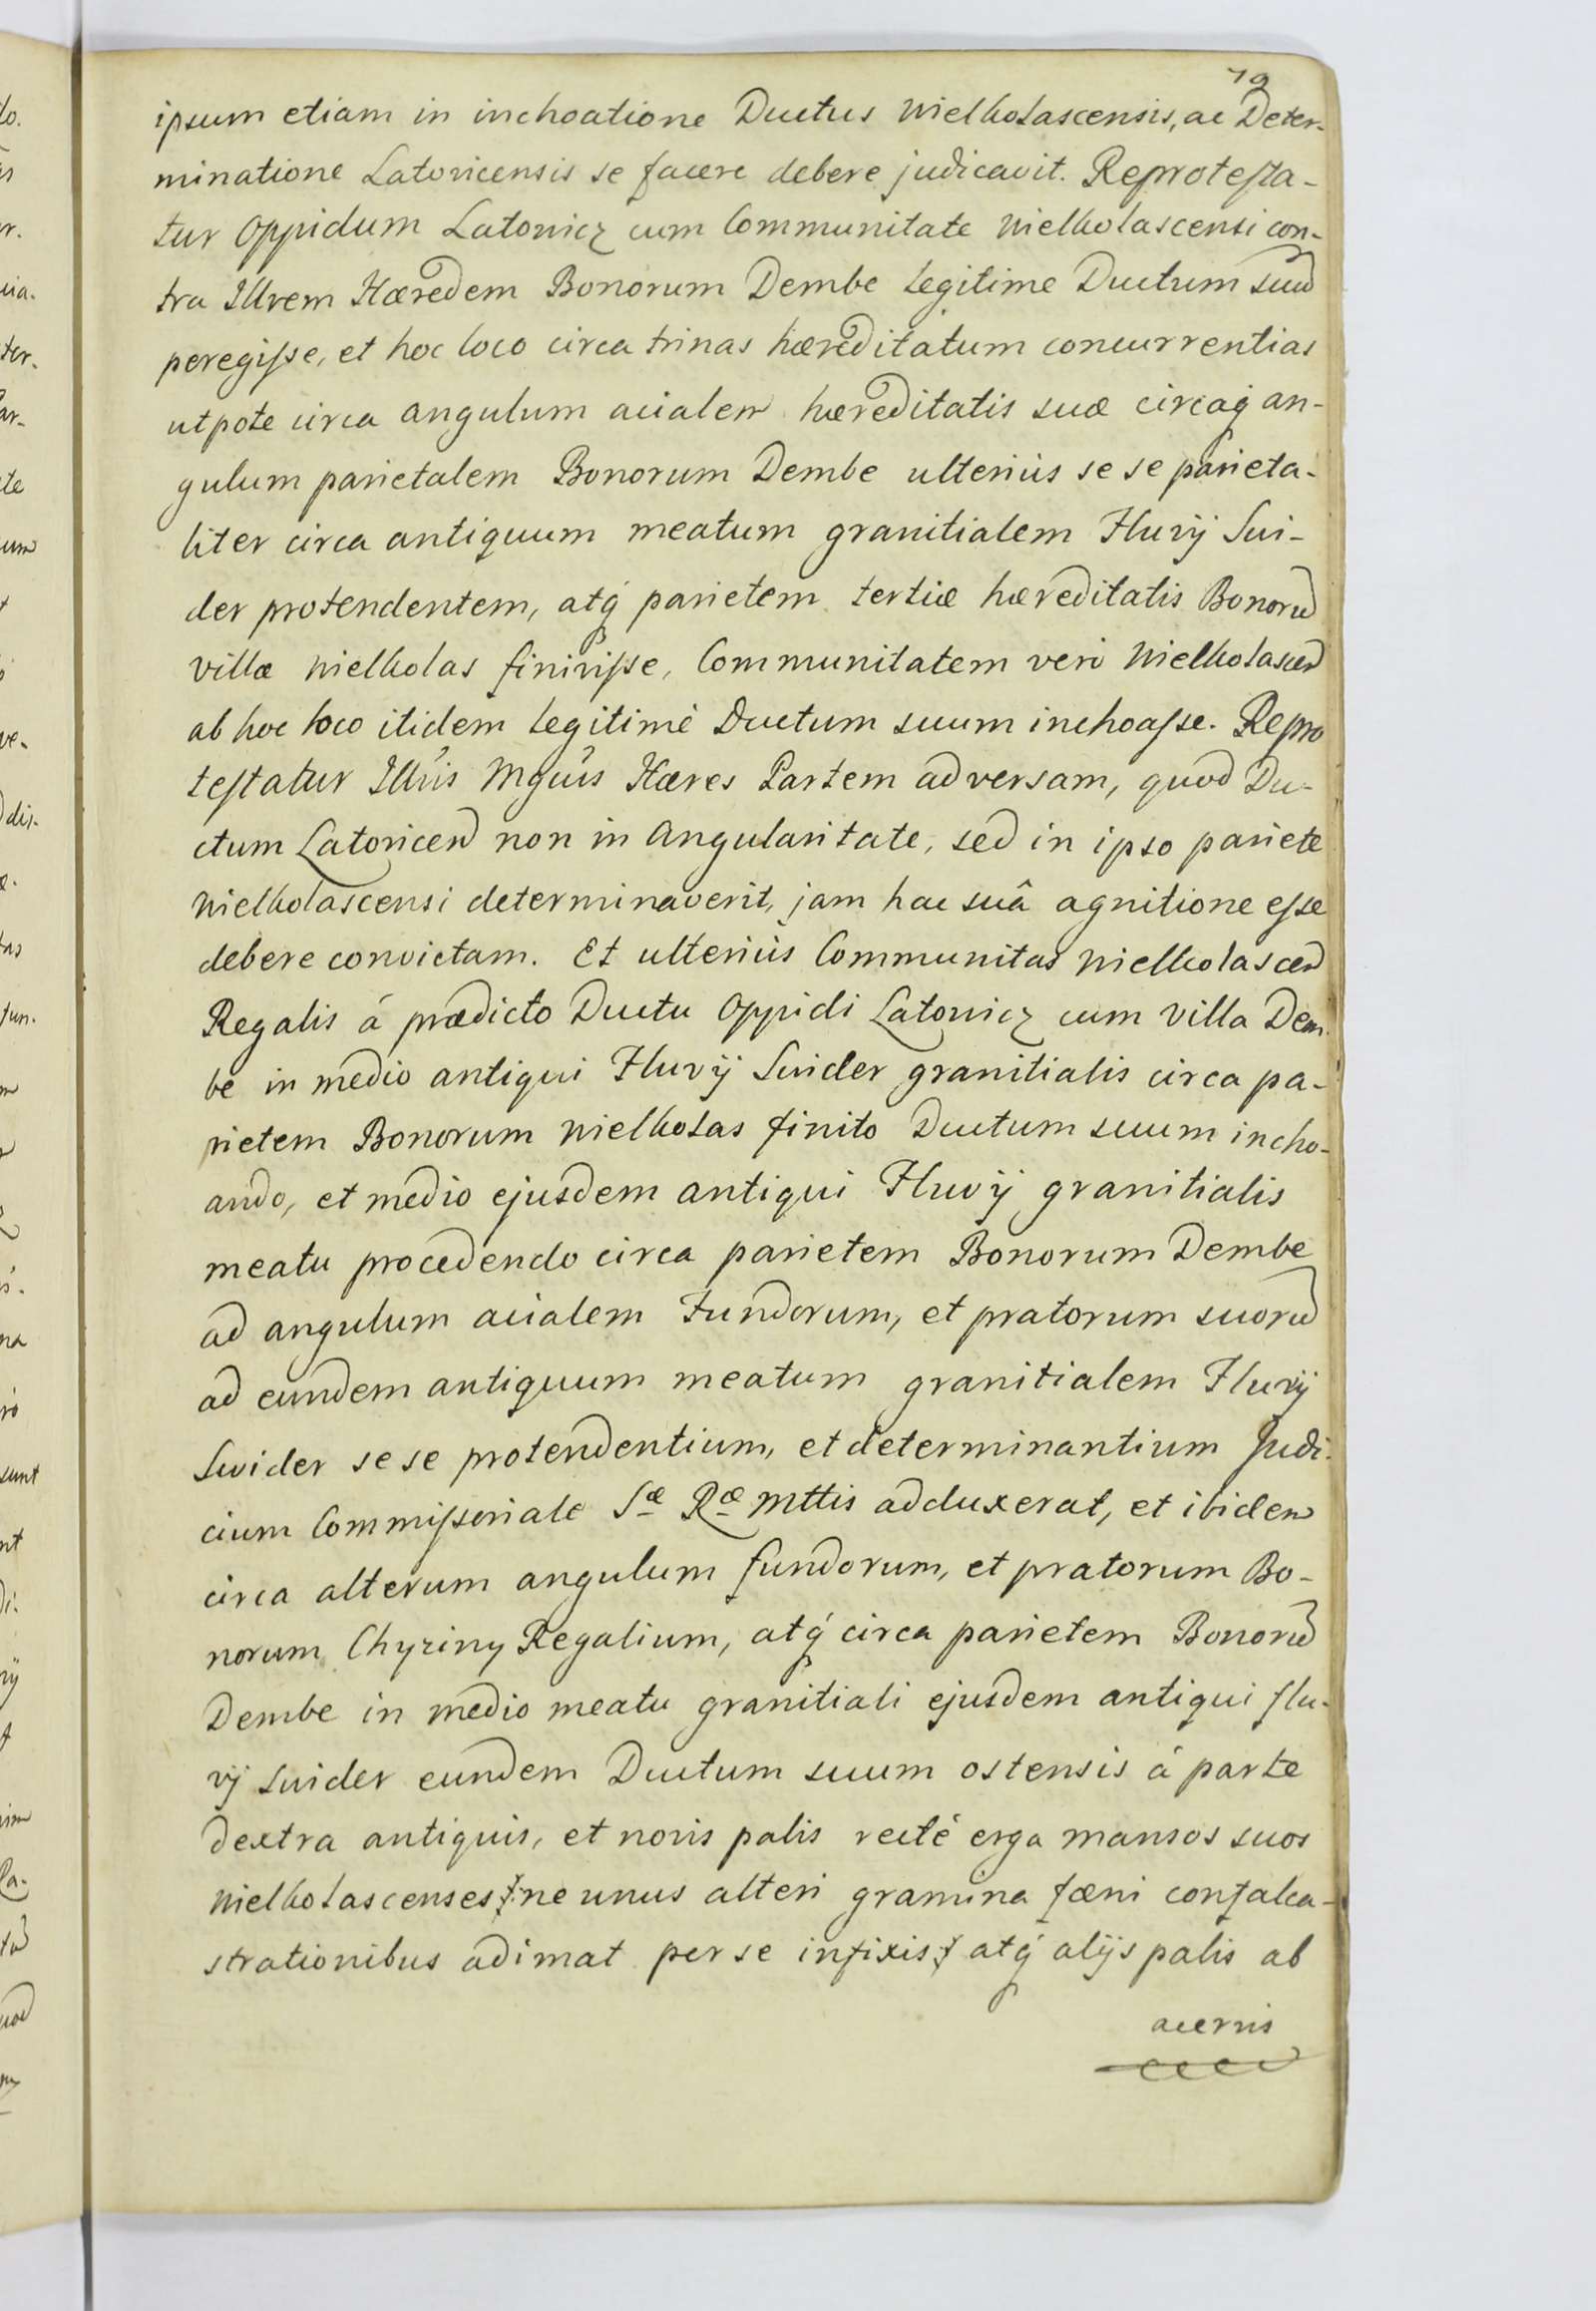 79
ipsum etiam in inchoatione Ductus Wielkolascensis, ac Deter-
minatione Latovicensis se facere debere judicavit. Reprotesta-
tur Oppidum Latowicz cum Communitate Wielkolascensi con-
tra Illrem Hæredem Bonorum Dembe legitime Ductum suu
peregisse, et hoc loco circa trinas hæreditatum concurrentias
utpote circa angulum acialem hæreditatis suæ circaq an-
gulum parietalem Bonorum Dembe ulteriùs se se parieta-
liter circa antiquum meatum granitialem Fluvÿ Swi-
der protendentem, atq́ parietem tertiæ hæreditatis Bonoru
villæ Wielkolas finivisse, Communitatem verò Wielkolascen
ab hoc loco itidem legitimè Ductum suum inchoasse. Repro
testatur Illůs Mgůs Hæres Partem adversam, quod Du-
ctum Latovicen non in Angularitate, sed in ipso pariete
Wielkolascensi determinaverit, jam hac suâ agnitione esse
debere convictam. Et ulteriùs Communitas Wielkolascen
Regalis á prædicto Ductu Oppidi Latowicz cum villa Dem
be in medio antiqui Fluvÿ Swider granitialis circa pa-
rietem Bonorum Wielkolas finito Ductum suum incho-
ando, et medio ejusdem antiqui Fluvÿ granitialis
meatu procedendo circa parietem Bonorum Dembe
ad angulum acialem Fundorum, et pratorum suoru
ad eundem antiquum meatum granitialem Fluvÿ
Swider se se protendentium, et determinantium Judi-
cium Commissoriale Sæ Ræ Mttis adduxerat, et ibidem
circa alterum angulum fundorum, et pratorum Bo-
norum Chyziny Regalium, atq́ circa parietem Bonoru
Dembe in medio meatu granitiali ejusdem antiqui flu-
vÿ Swider eundem Ductum suum ostensis á parte
dextra antiquis, et novis palis recté erga mansos suos
Wielkolascenses ne unus alteri gramina fæni confalca-
strationibus adimat per se infixis atq́ alÿs palis ab
acernis